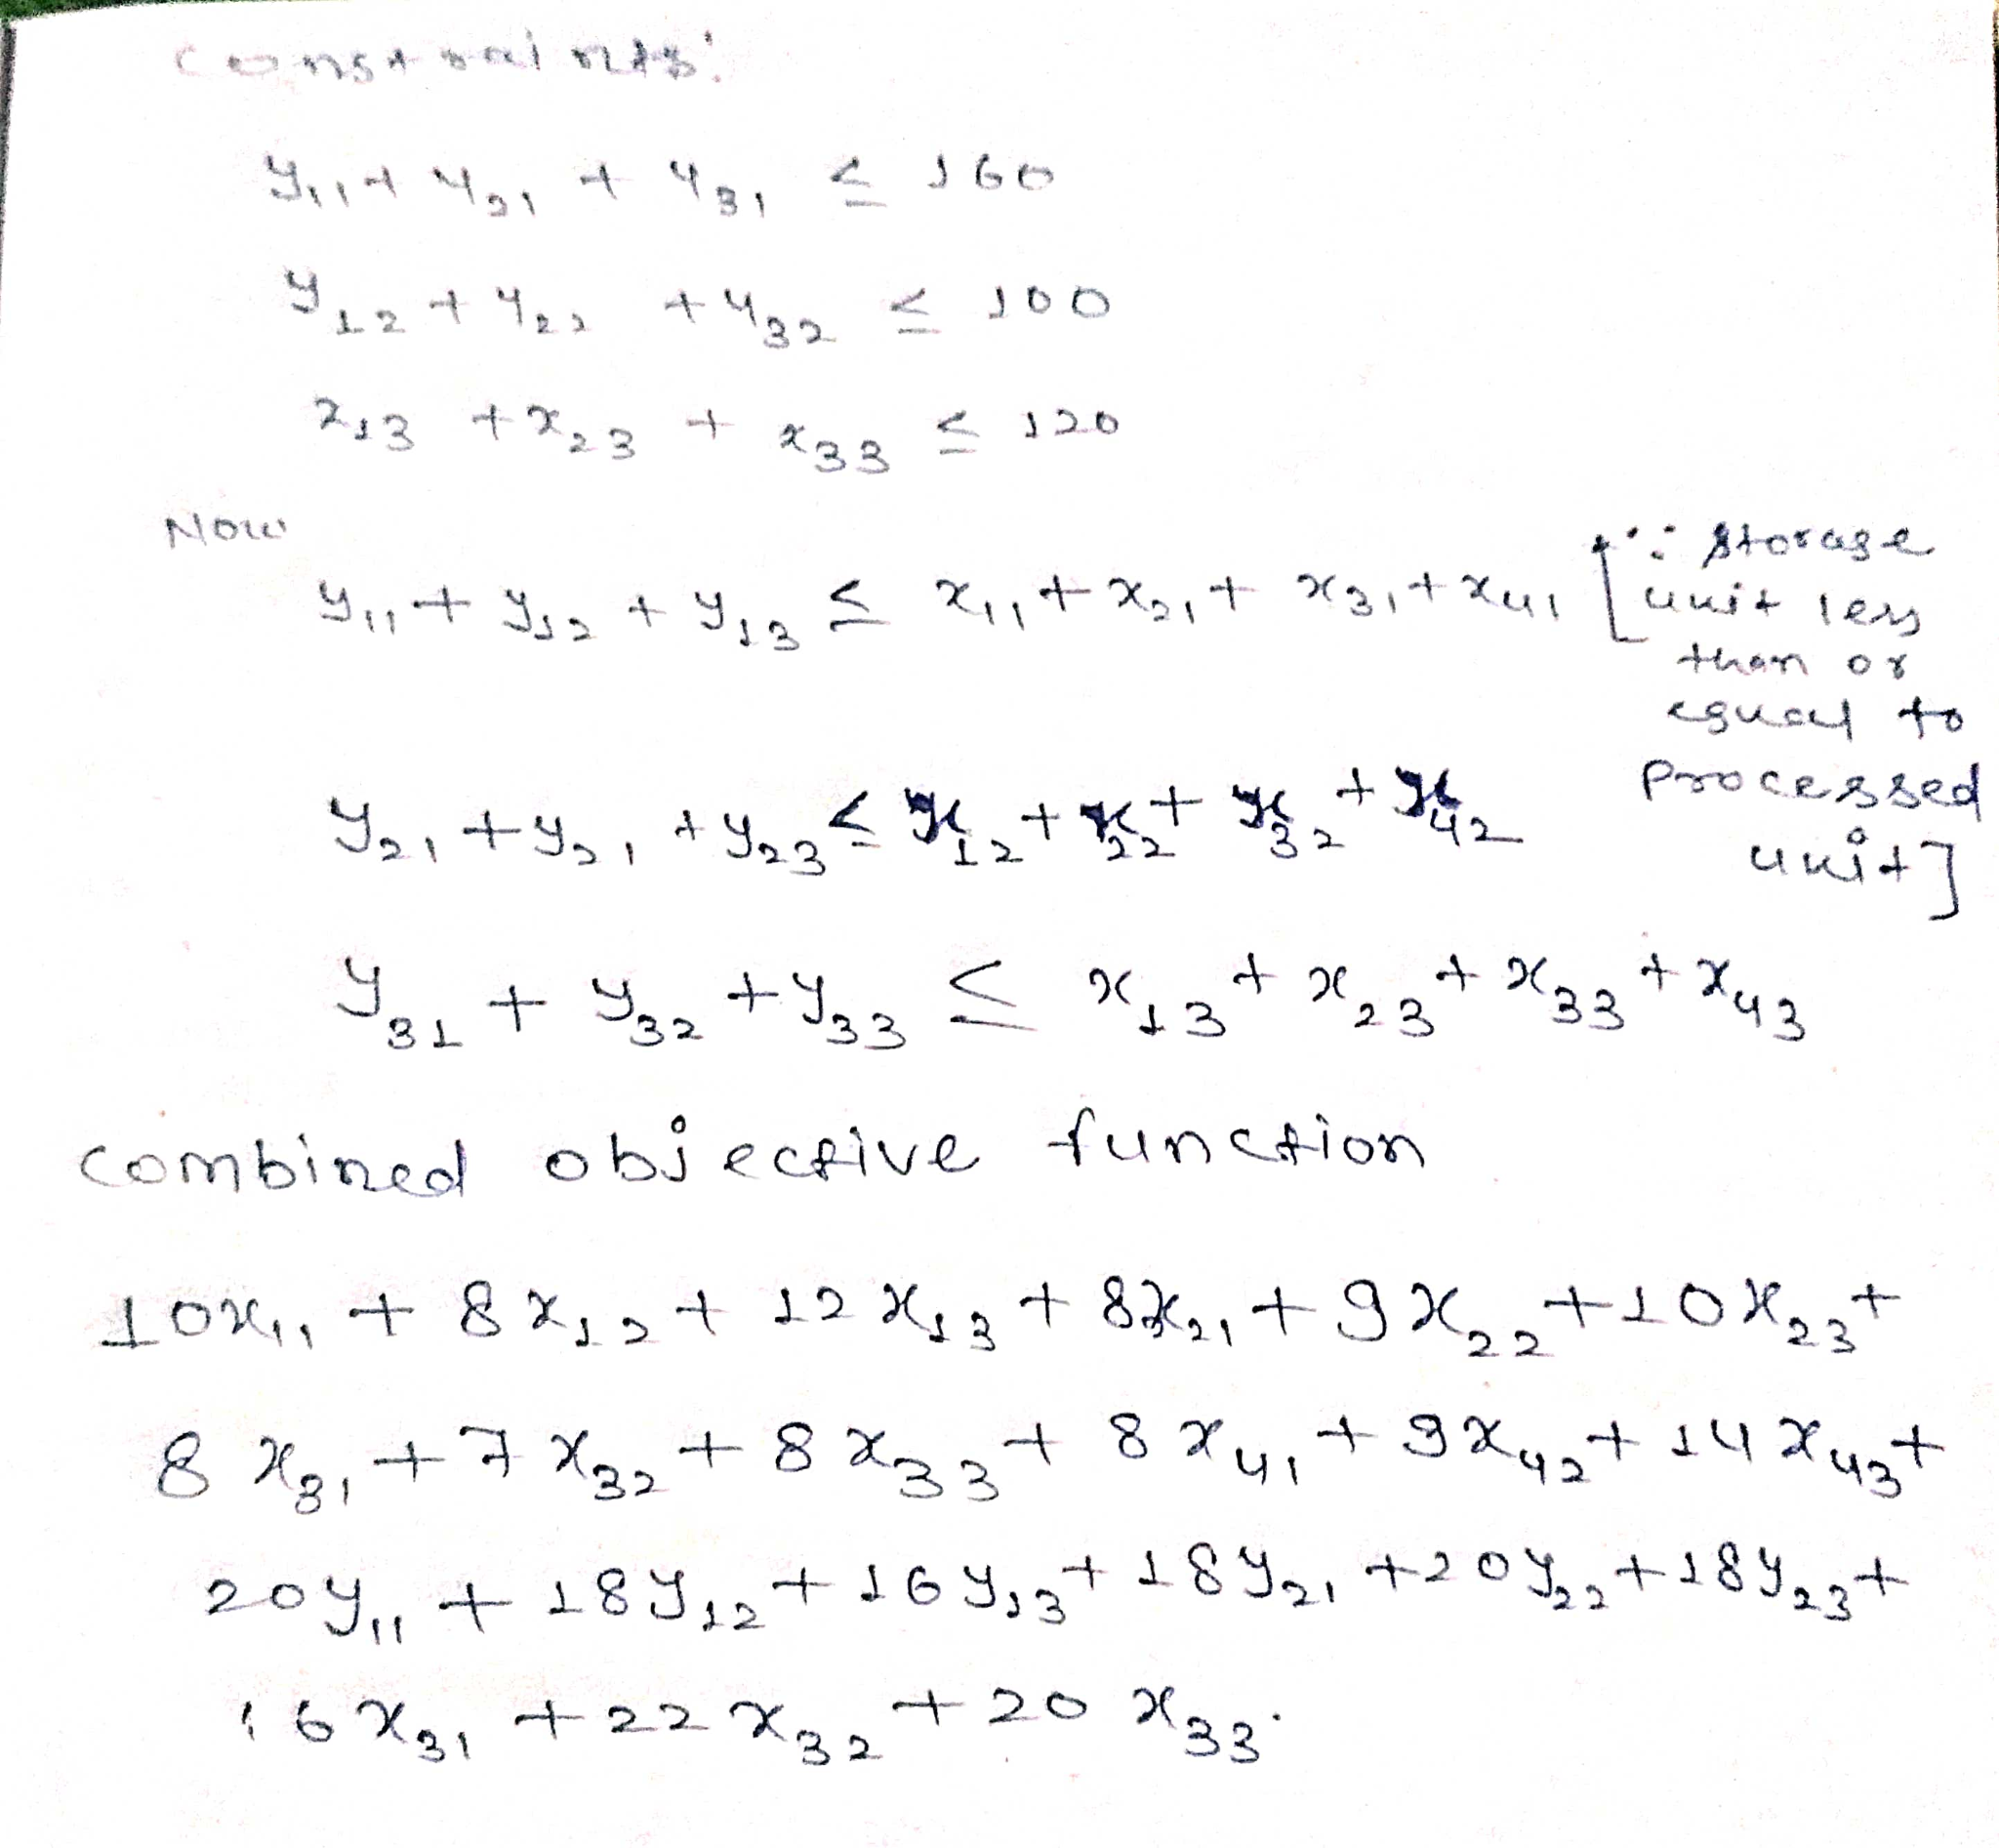 constraints:
y₁₁ + y₂₁ + y₃₁ ≤ 160
y₁₂ + y₂₂ + y₃₂ ≤ 100
x₁₃ + x₂₃ + x₃₃ ≤ 120
Now
y₁₁ + y₁₂ + y₁₃ ≤ x₁₁ + x₂₁ + x₃₁ + x₄₁ [∵ storage
unit less
than or
equal to
processed
unit]
y₂₁ + y₂₁ + y₂₃ ≤ x₁₂ + x₂₂ + x₃₂ + x₄₂
y₃₁ + y₃₂ + y₃₃ ≤ x₁₃ + x₂₃ + x₃₃ + x₄₃
combined objective function
10x₁₁ + 8x₁₂ + 12x₁₃ + 8x₂₁ + 9x₂₂ + 10x₂₃ +
8x₃₁ + 7x₃₂ + 8x₃₃ + 8x₄₁ + 9x₄₂ + 14x₄₃ +
20y₁₁ + 18y₁₂ + 16y₁₃ + 18y₂₁ + 20y₂₂ + 18y₂₃ +
16x₃₁ + 22x₃₂ + 20x₃₃.